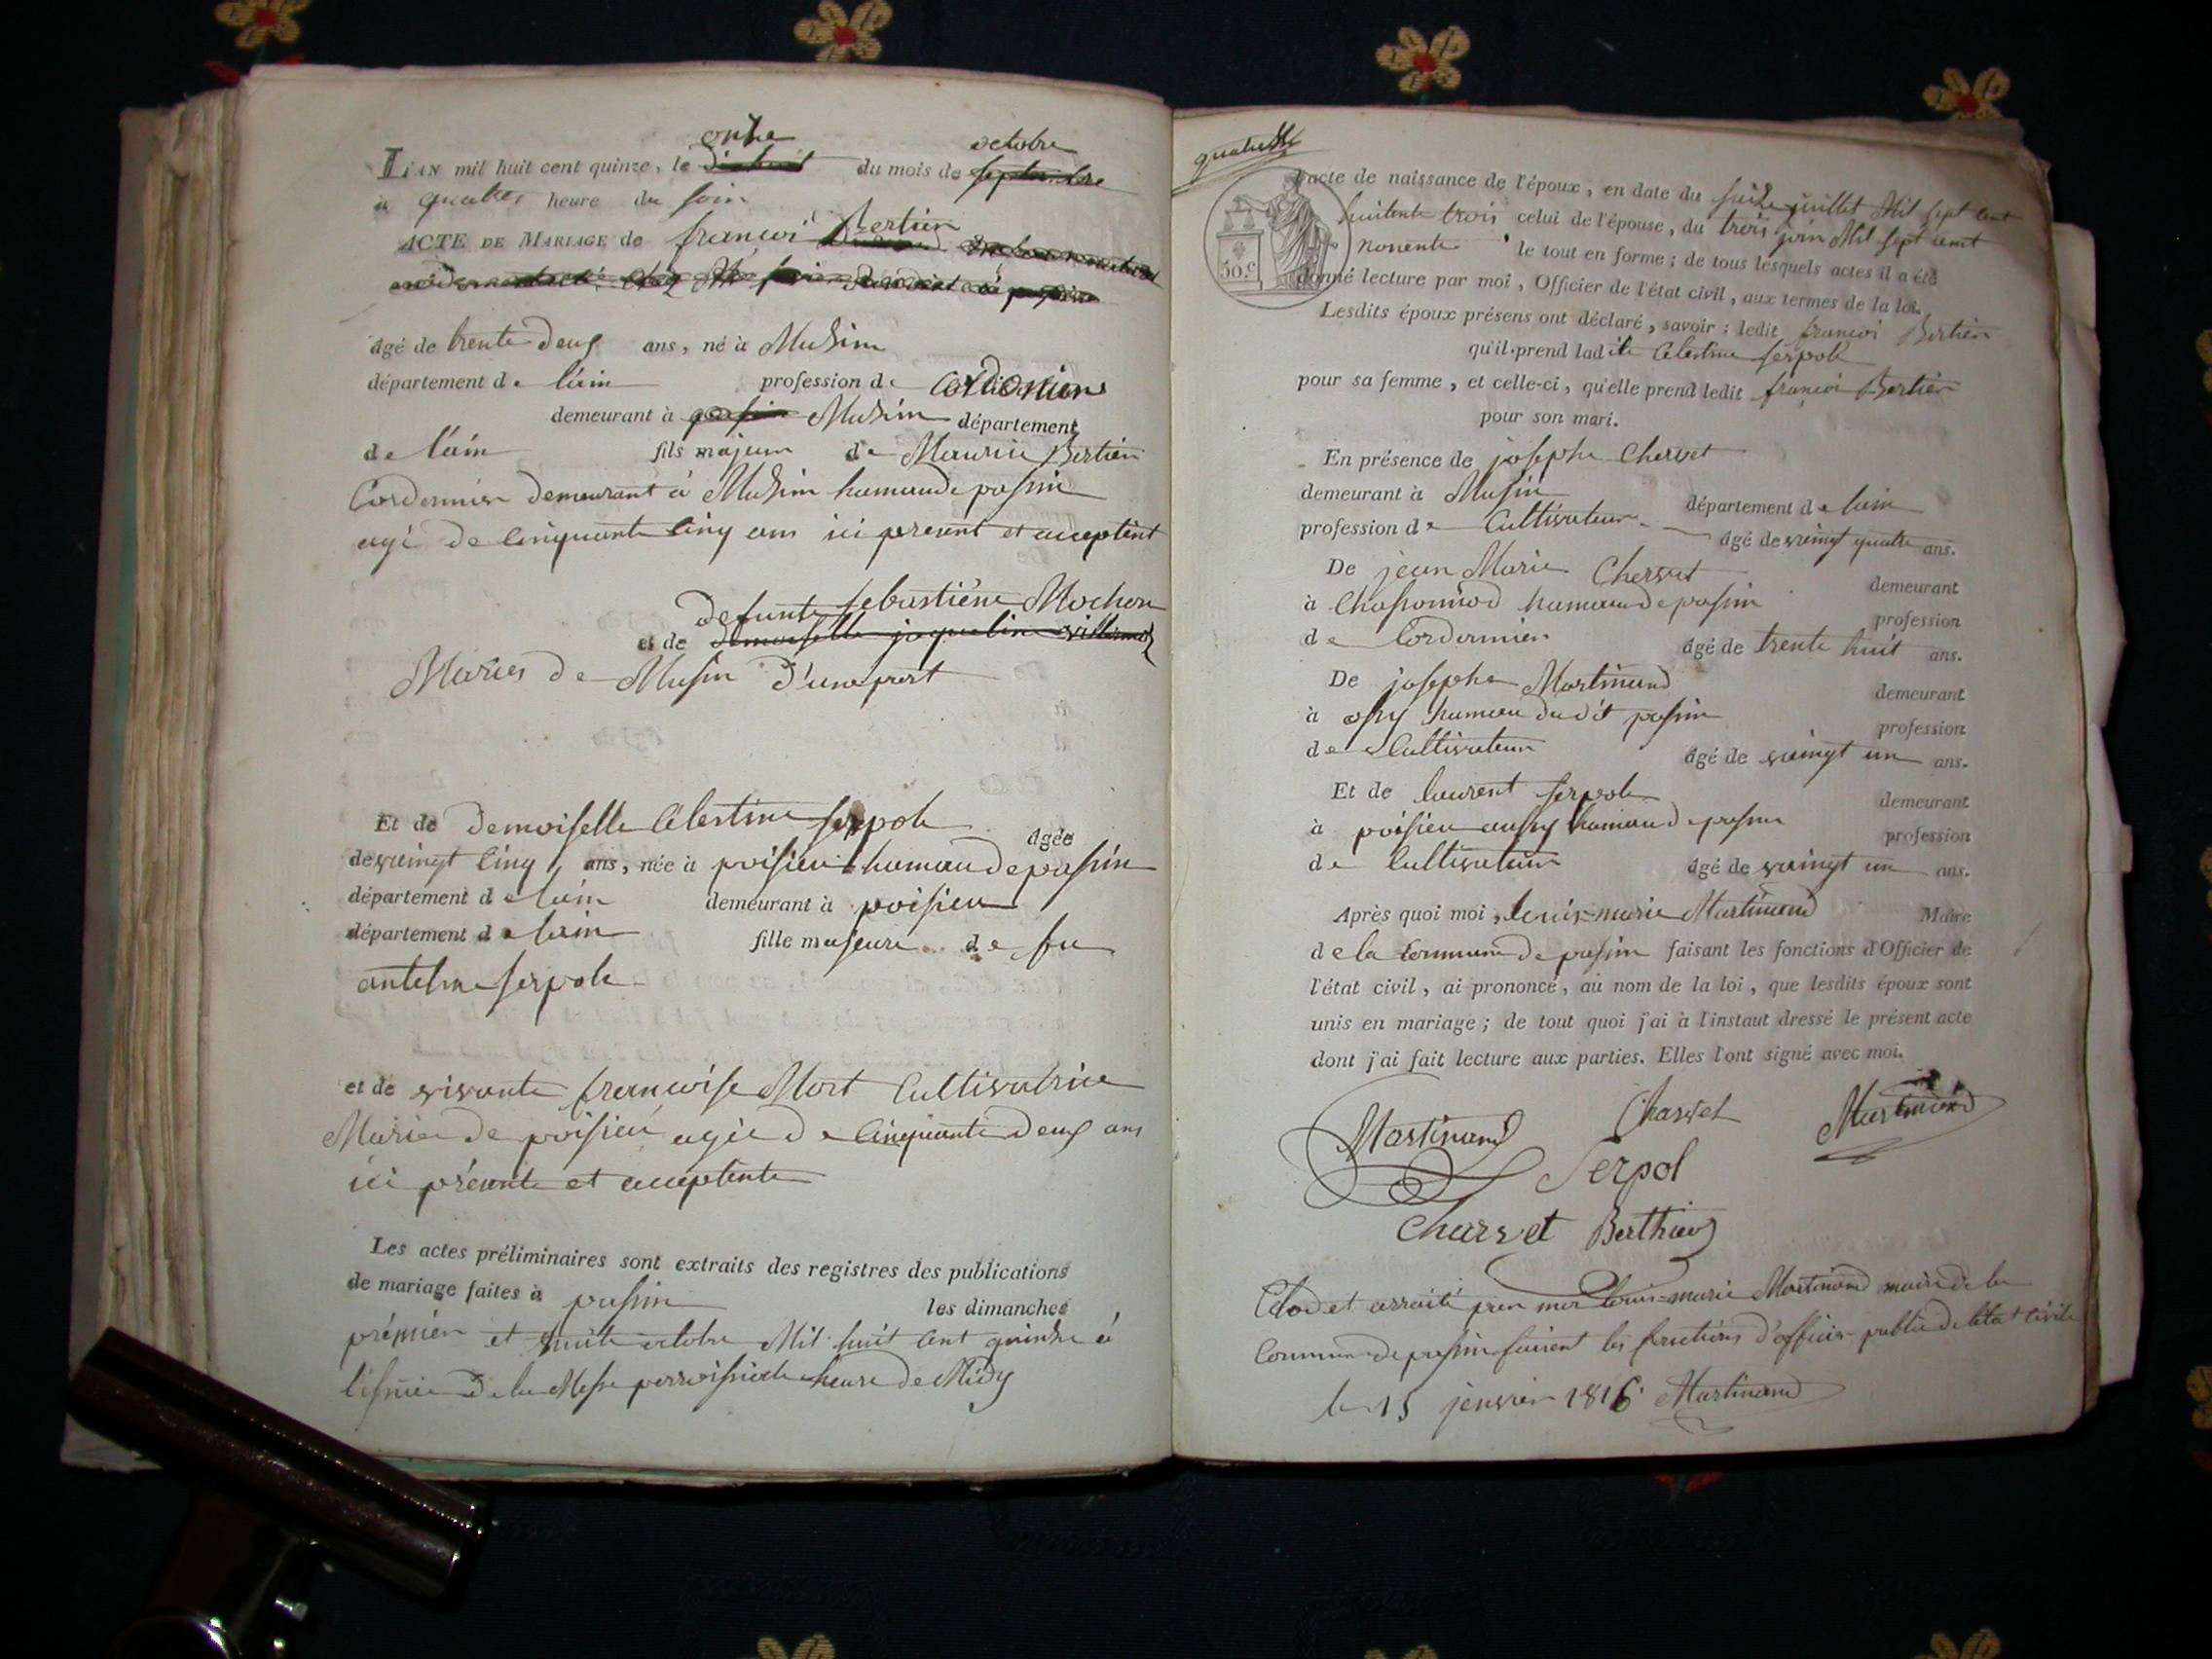 onze octobre
L'AN mil huit cent quinze, le du mois de septembre
à quattres heure du soir
ACTE DE MARIAGE de francoi Bertier
âgé de trente deux ans, né à Musin
département de l'ain profession de Cordonier
demeurant à Musin département
de l'ain fils majeur de Mauricu Bertier
Cordonnier demeurant à Musin hamaude pasin
agé de Cinquante Cinq ans ici present et acceptent
defunte sebastiéne Mochon
et de demoiselle jaqueline
Mariés de Musin d'une part
Et de demoiselle Célestine serpole agée
de vaingt Cinq ans, née à poisieu hamaude pasin
département de l'ain demeurant à poisieu
département de l'ain fille majeure de feu
antelme serpole
et de vivante francoise Mort Cultivatrice
Mariée de poisieu agée de Cinquante deux ans
ici présente et acceptente
Les actes préliminaires sont extraits des registres des publications
de mariage faites à pasin les dimanches
prémiér et huite octobre Mil huit Cent quinze à
l'isue de la Messe parroissiale heure de Midy
l'acte de naissance de l'époux, en date du seize juillet Mil sept cent
huitente trois celui de l'épouse, du trois juin Mil sept cent
nonente le tout en forme; de tous lesquels actes il a été
donné lecture par moi, Officier de l'état civil, aux termes de la loi.
50.c
Lesdits époux présens ont déclaré, savoir: ledit francoi Bertier
qu'il prend ladite Célestine serpole
pour sa femme, et celle-ci, qu'elle prend ledit françoi Bertier
pour son mari.
En présence de josephe Chervet
demeurant à Musin département de l'ain
profession de Cultivateur âgé de vaingt quatre ans.
De jean Marie Chervet demeurant
à Chassonod hamaude pasin profession
de Cordonnier âgé de trente huit ans.
De josephe Martinand demeurant
à ossy hamau dudit pasin profession
de Cultivateur âgé de vaingt un ans.
Et de laurent serpole demeurant
à poisieu aussy hamaude pasin profession
de Cultivateur âgé de vaingt un ans.
Après quoi moi, louis-marie Martinand Maire
de la Commune de pasin faisant les fonctions d'Officier de
l'état civil, ai prononcé, au nom de la loi, que lesdits époux sont
unis en mariage; de tout quoi j'ai à l'instaut dressé le présent acte
dont j'ai fait lecture aux parties. Elles l'ont signé avec moi.
Martinand Charvet Martinand
Serpol
Charvet Berthier
Clod et arraité par moi louis-marie Martinand maire de la
Commune de pasin faisent les fonctions d'officier public de l'état civile
le 15 janvier 1816 Martinand